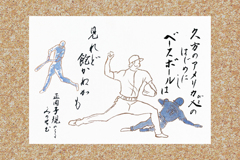 久方のアメリカ人の
はじめにし
ベースボールは
見れど
飽かぬかも
正岡子規